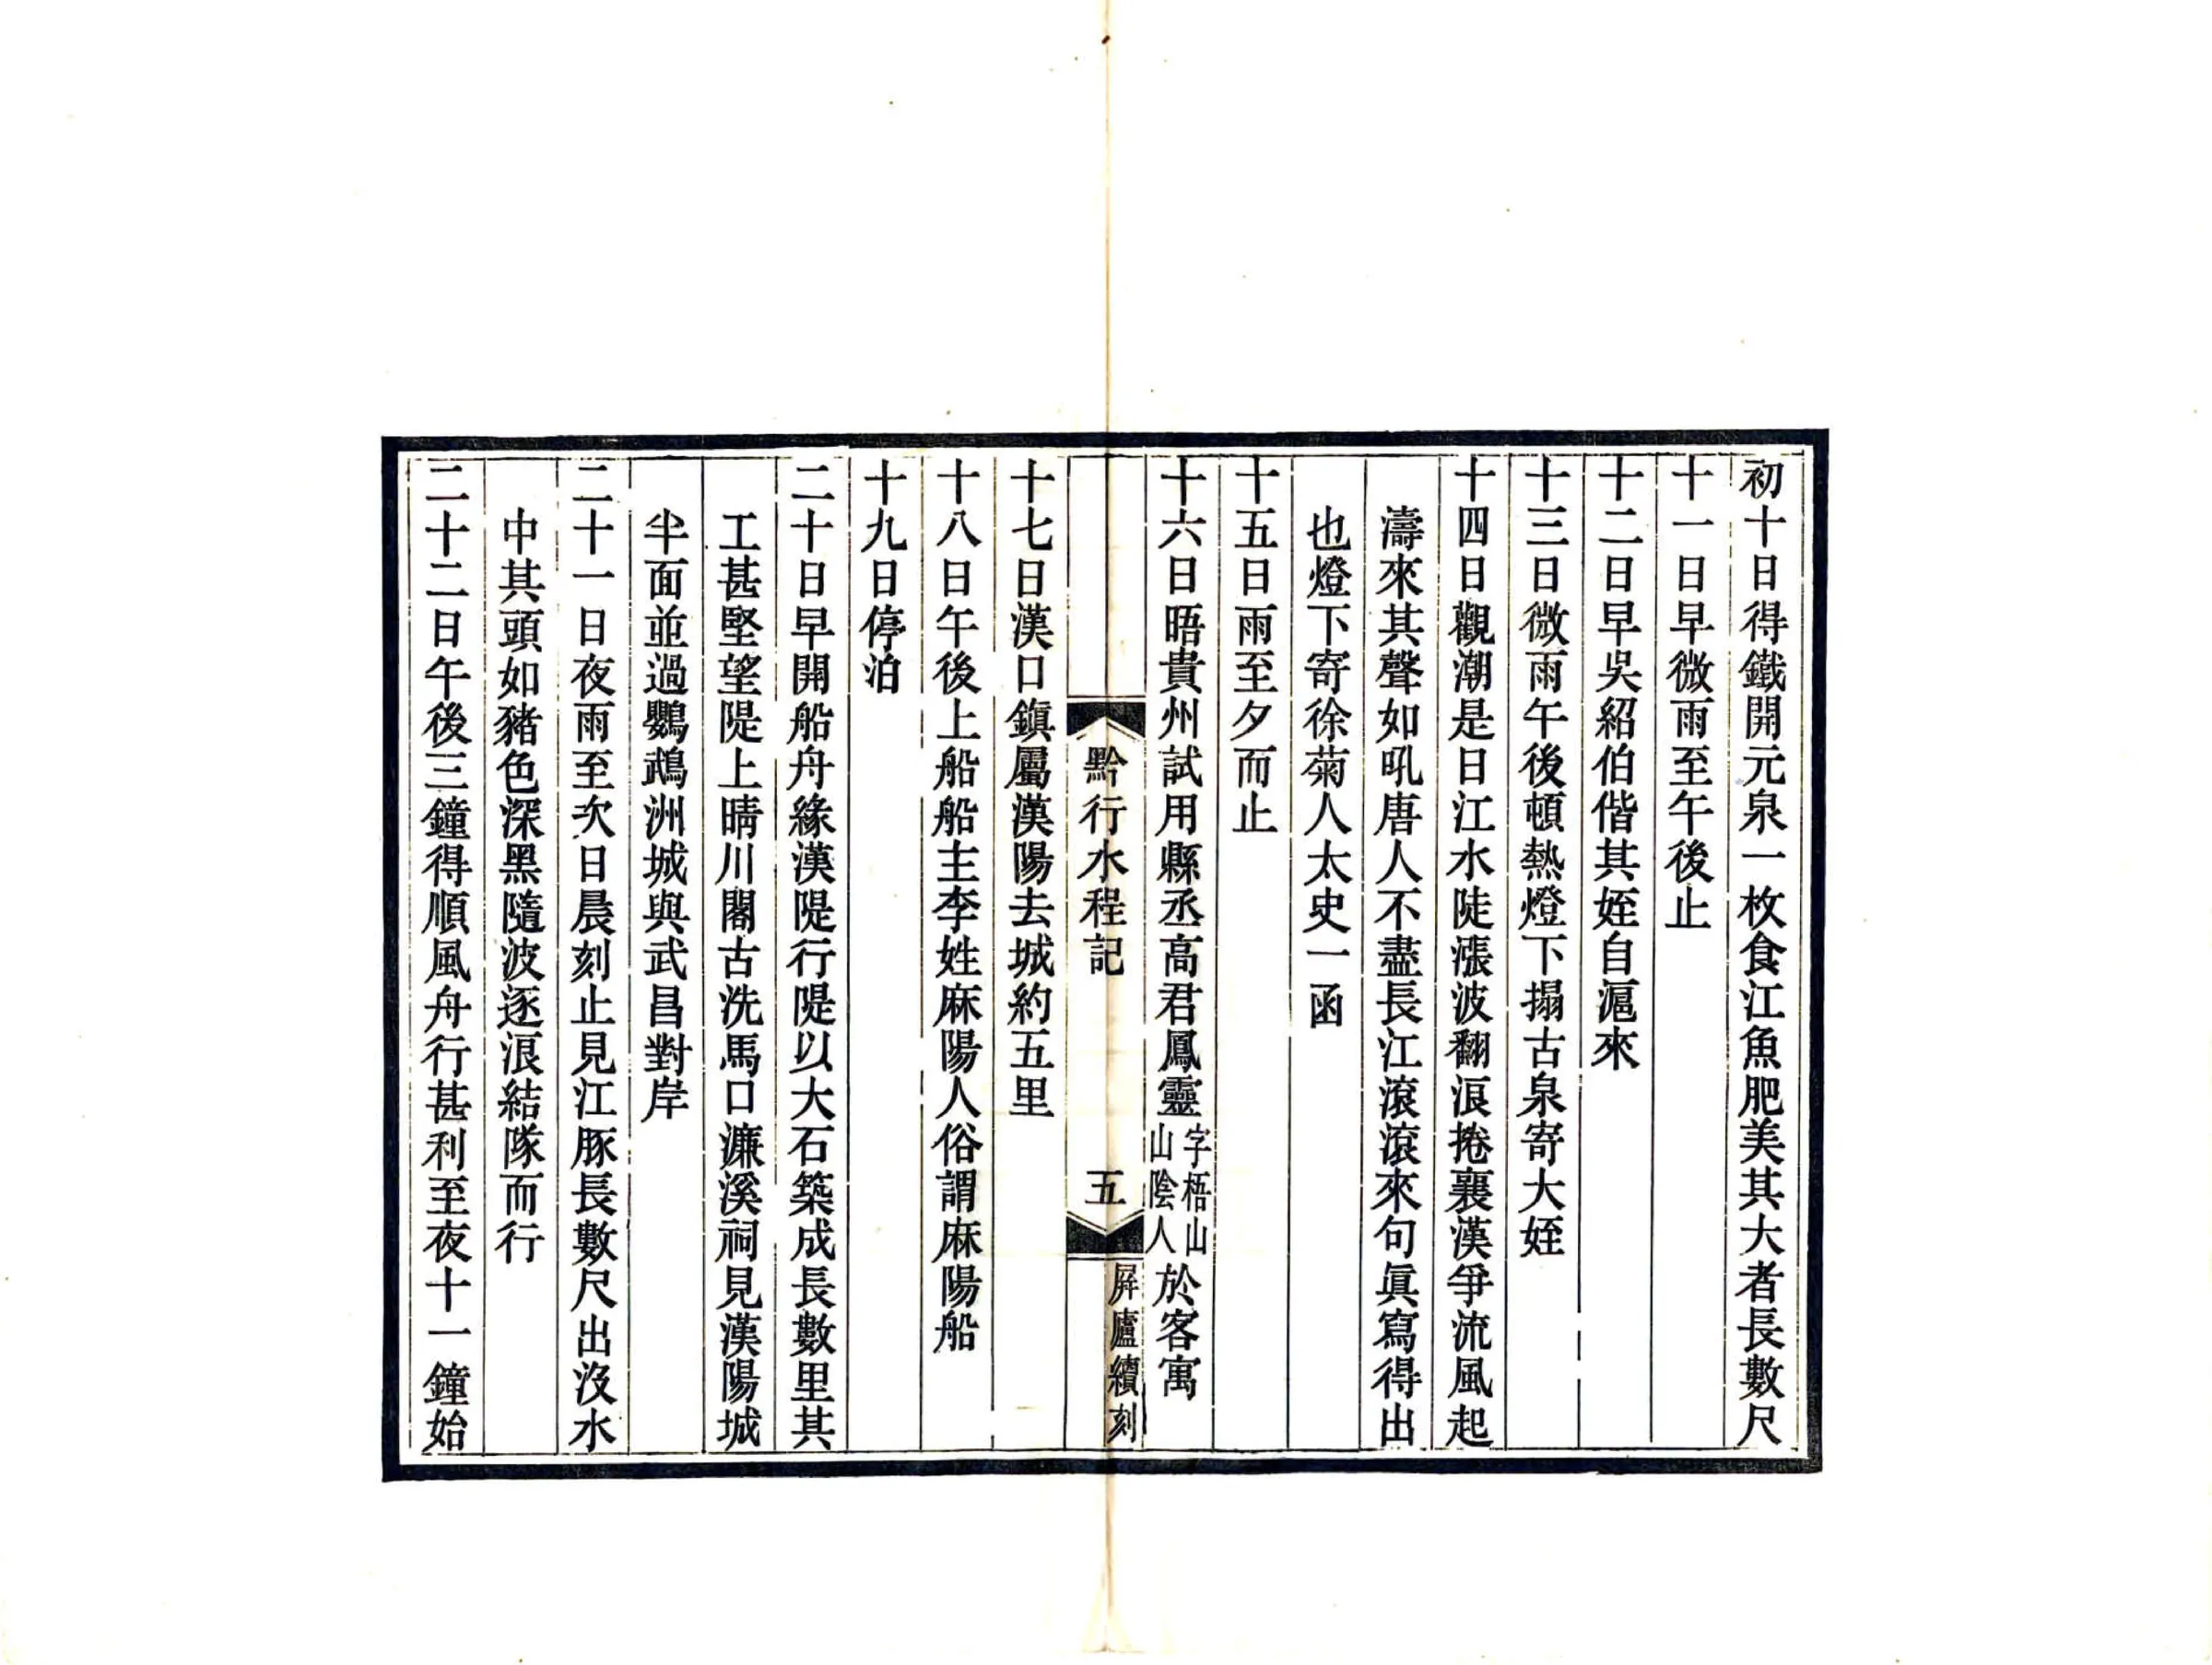 初十日得鐵開元泉一枚食江魚肥美其大者長數尺
十一日早微雨至午後止
十二日早吳紹伯偕其姪自滬來
十三日微雨午後頓熱燈下搨古泉寄大姪
十四日觀潮是日江水陡漲波翻浪捲襄漢爭流風起
濤來其聲如吼唐人不盡長江滾滾來句眞寫得出
也燈下寄徐菊人太史一函
十五日雨至夕而止
十六日晤貴州試用縣丞高君鳳靈字梧山山陰人於客寓
黔行水程記 五 屛廬續刻
十七日漢口鎭屬漢陽去城約五里
十八日午後上船船主李姓麻陽人俗謂麻陽船
十九日停泊
二十日早開船舟緣漢隄行隄以大石築成長數里其
工甚堅望隄上晴川閣古洗馬口濂溪祠見漢陽城
半面並過鸚鵡洲城與武昌對岸
二十一日夜雨至次日晨刻止見江豚長數尺出沒水
中其頭如豬色深黑隨波逐浪結隊而行
二十二日午後三鐘得順風舟行甚利至夜十一鐘始